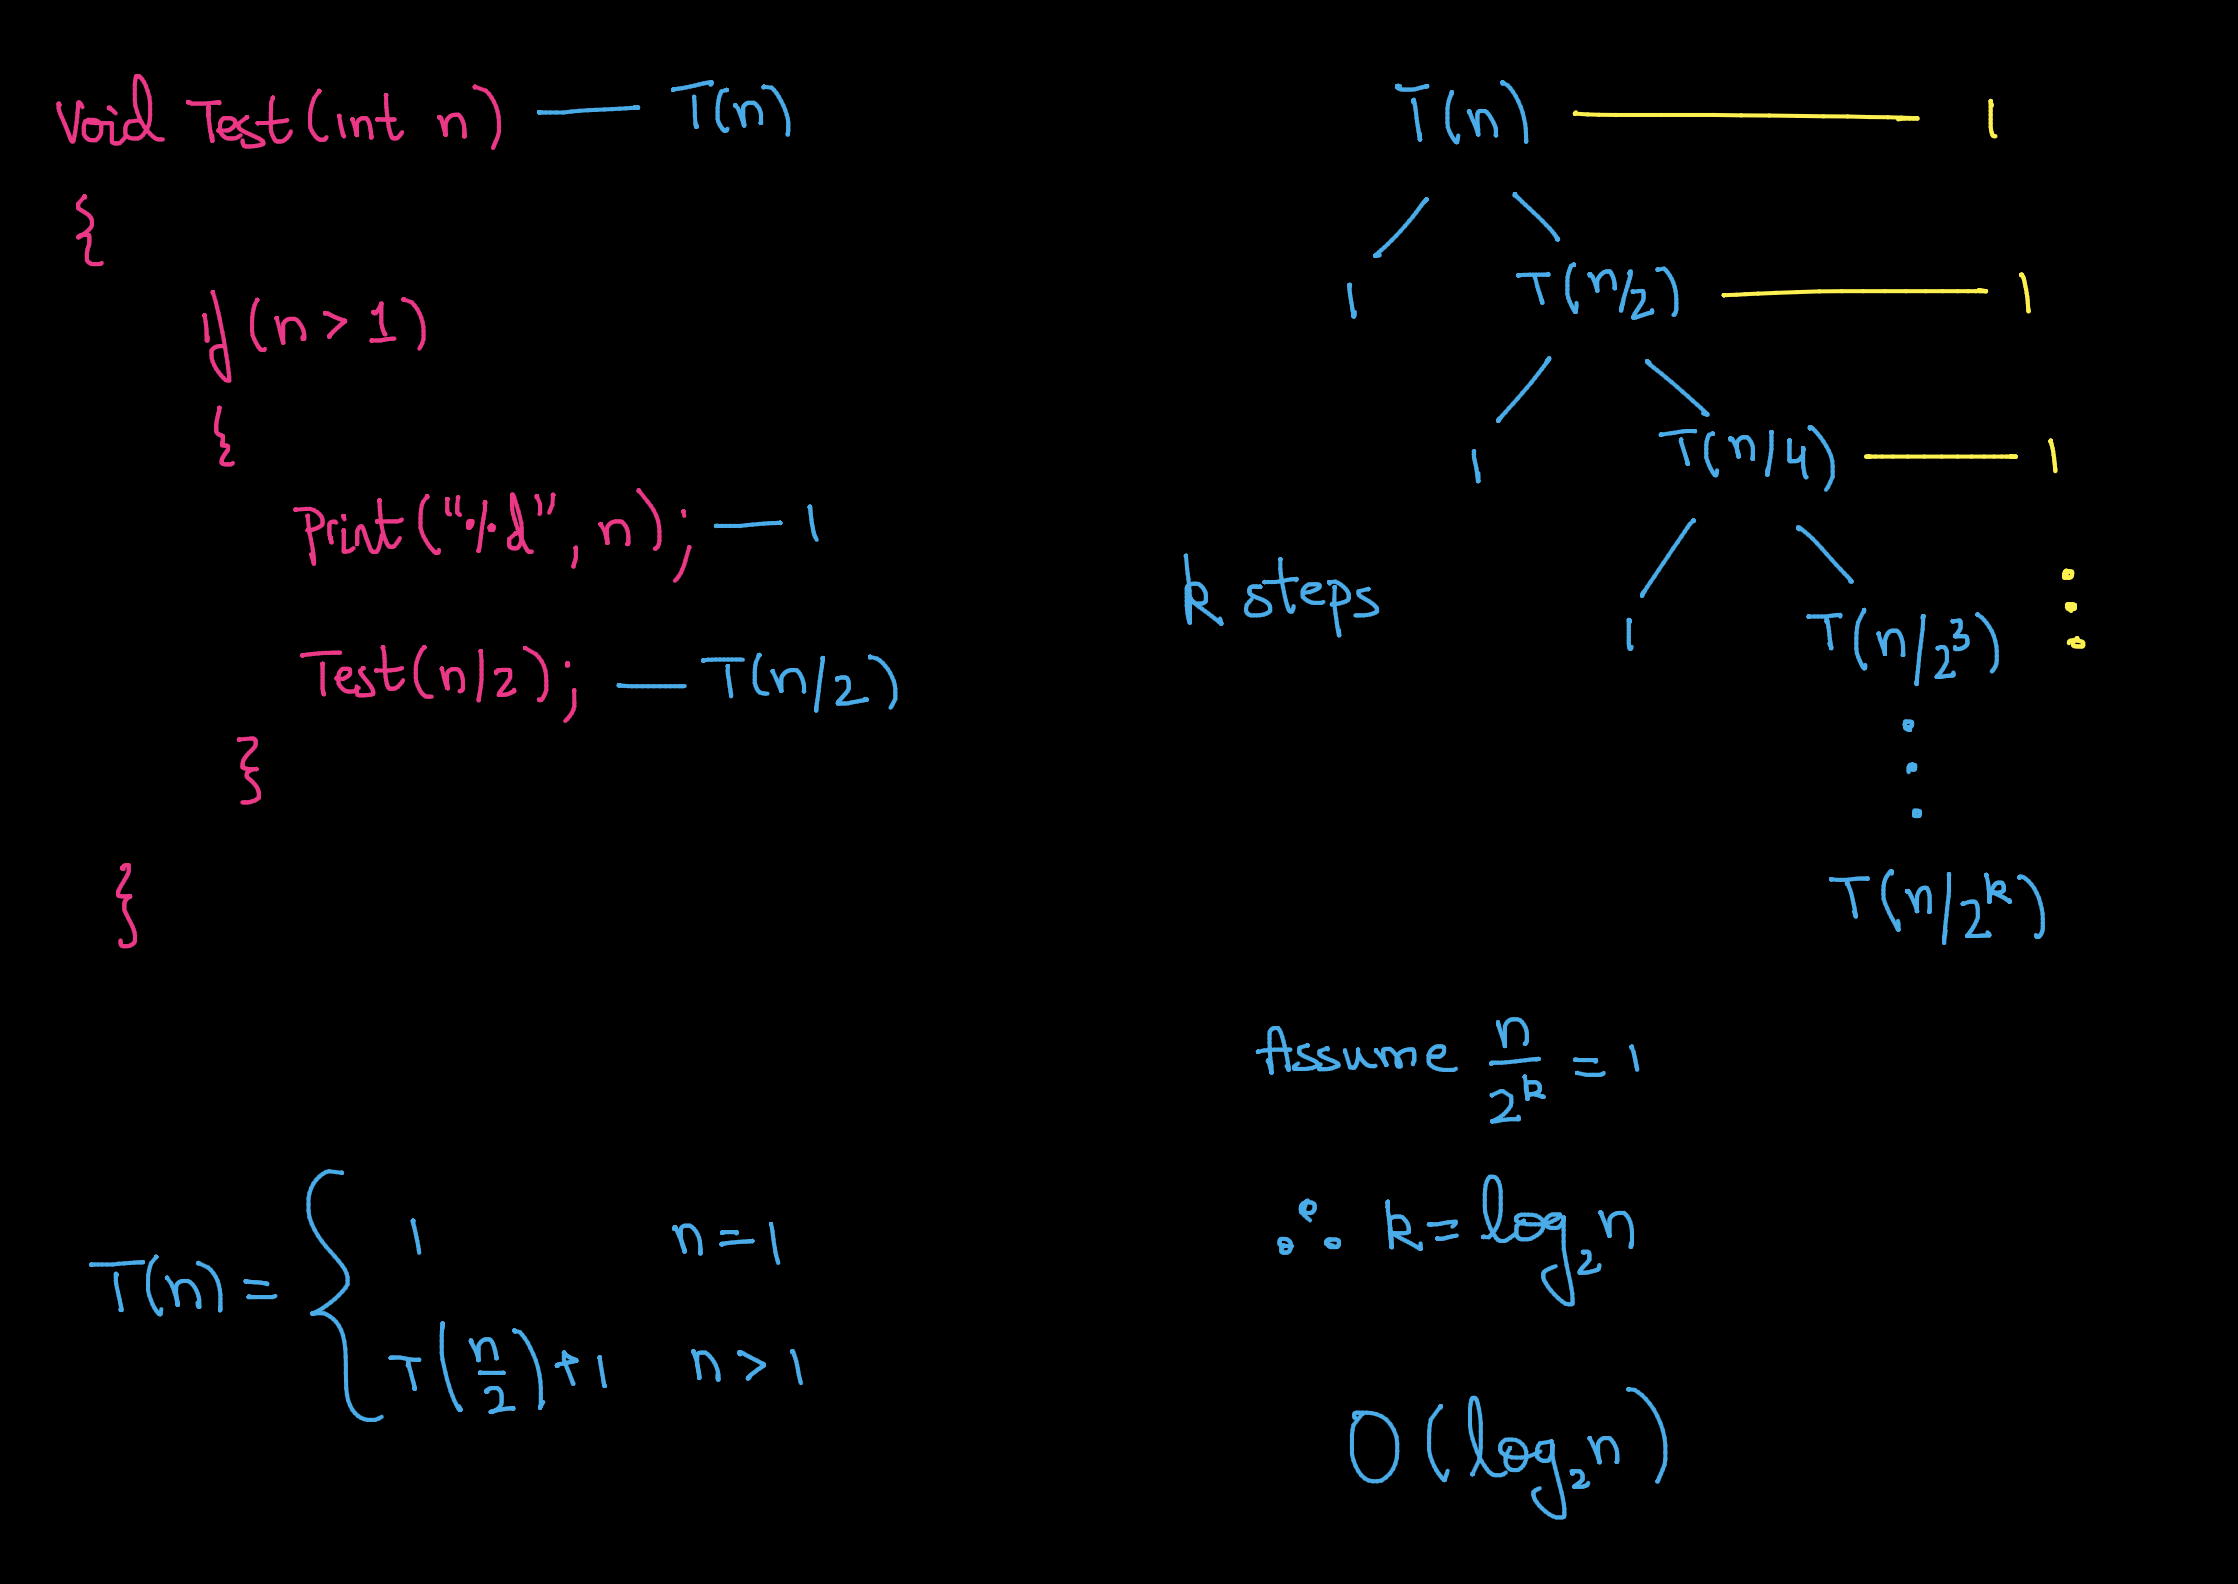 Void Test(int n) — T(n)
{
if (n > 1)
{
Print("%d", n); — 1
Test(n/2); — T(n/2)
}
}
T(n) = {
1 n = 1
T(n/2) + 1 n > 1
T(n) — 1
1 T(n/2) — 1
1 T(n/4) — 1
k steps
1 T(n/2³)
T(n/2ᵏ)
Assume n/2ᵏ = 1
∴ k = log₂n
O(log₂n)